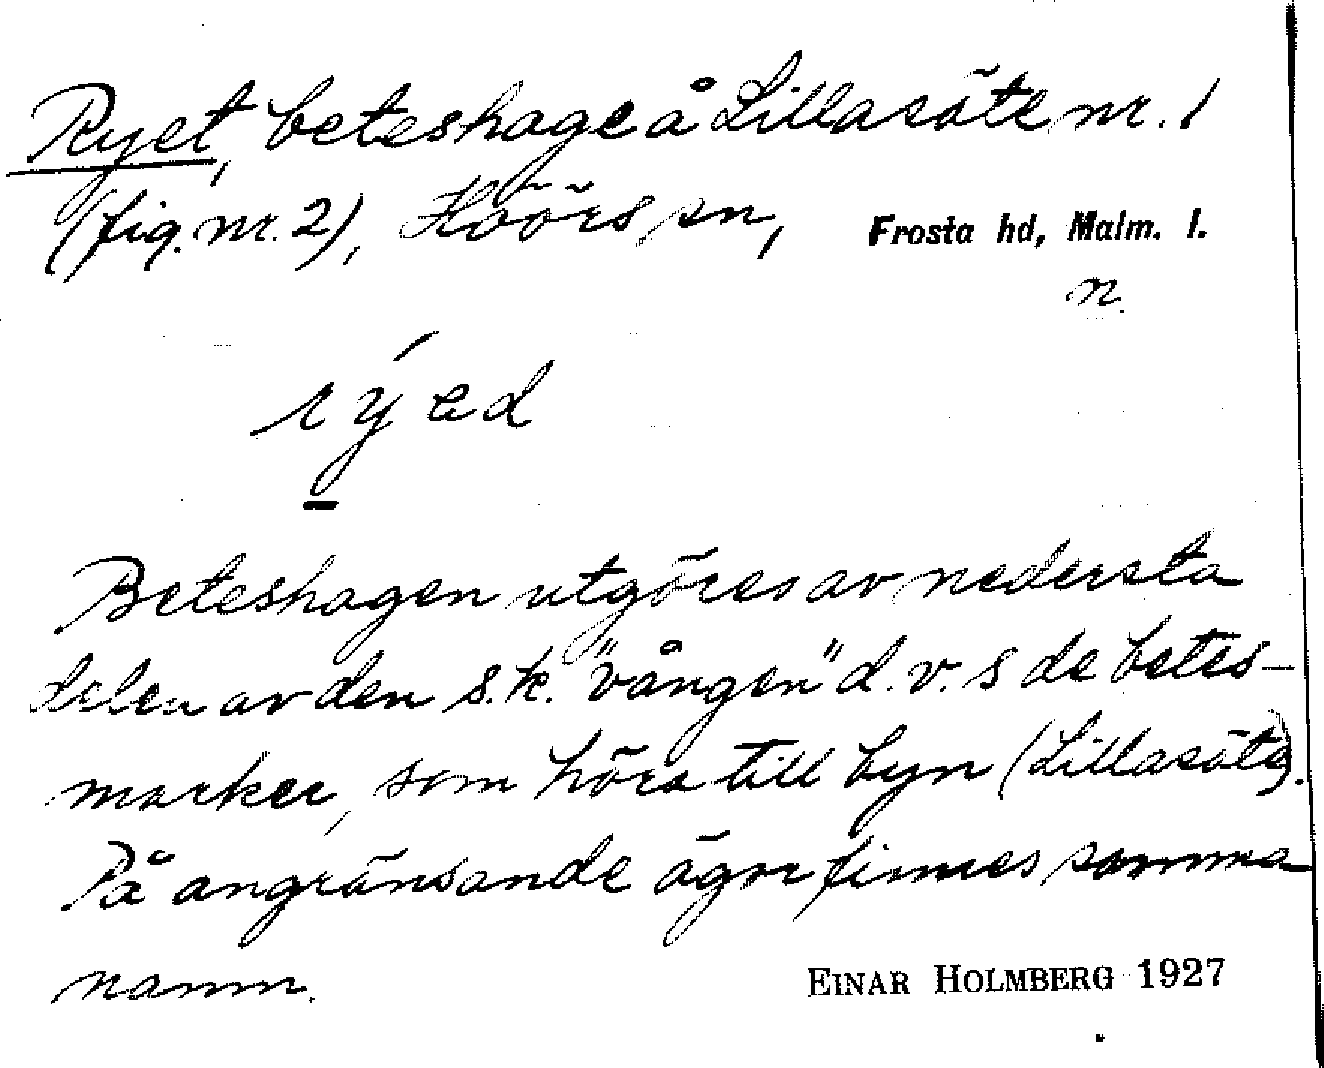 Ryet, beteshage å Lillasäte nr. 1
(fig. nr. 2), Höörs sn, Frosta hd, Malm. l.
n.
rýed
Beteshagen utgöres av nedersta
delen av den s.k. "vången" d.v.s de betes-
marker, som höra till byn (Lillasäte).
På angränsande ägor finnes samma
namn.
EINAR HOLMBERG 1927